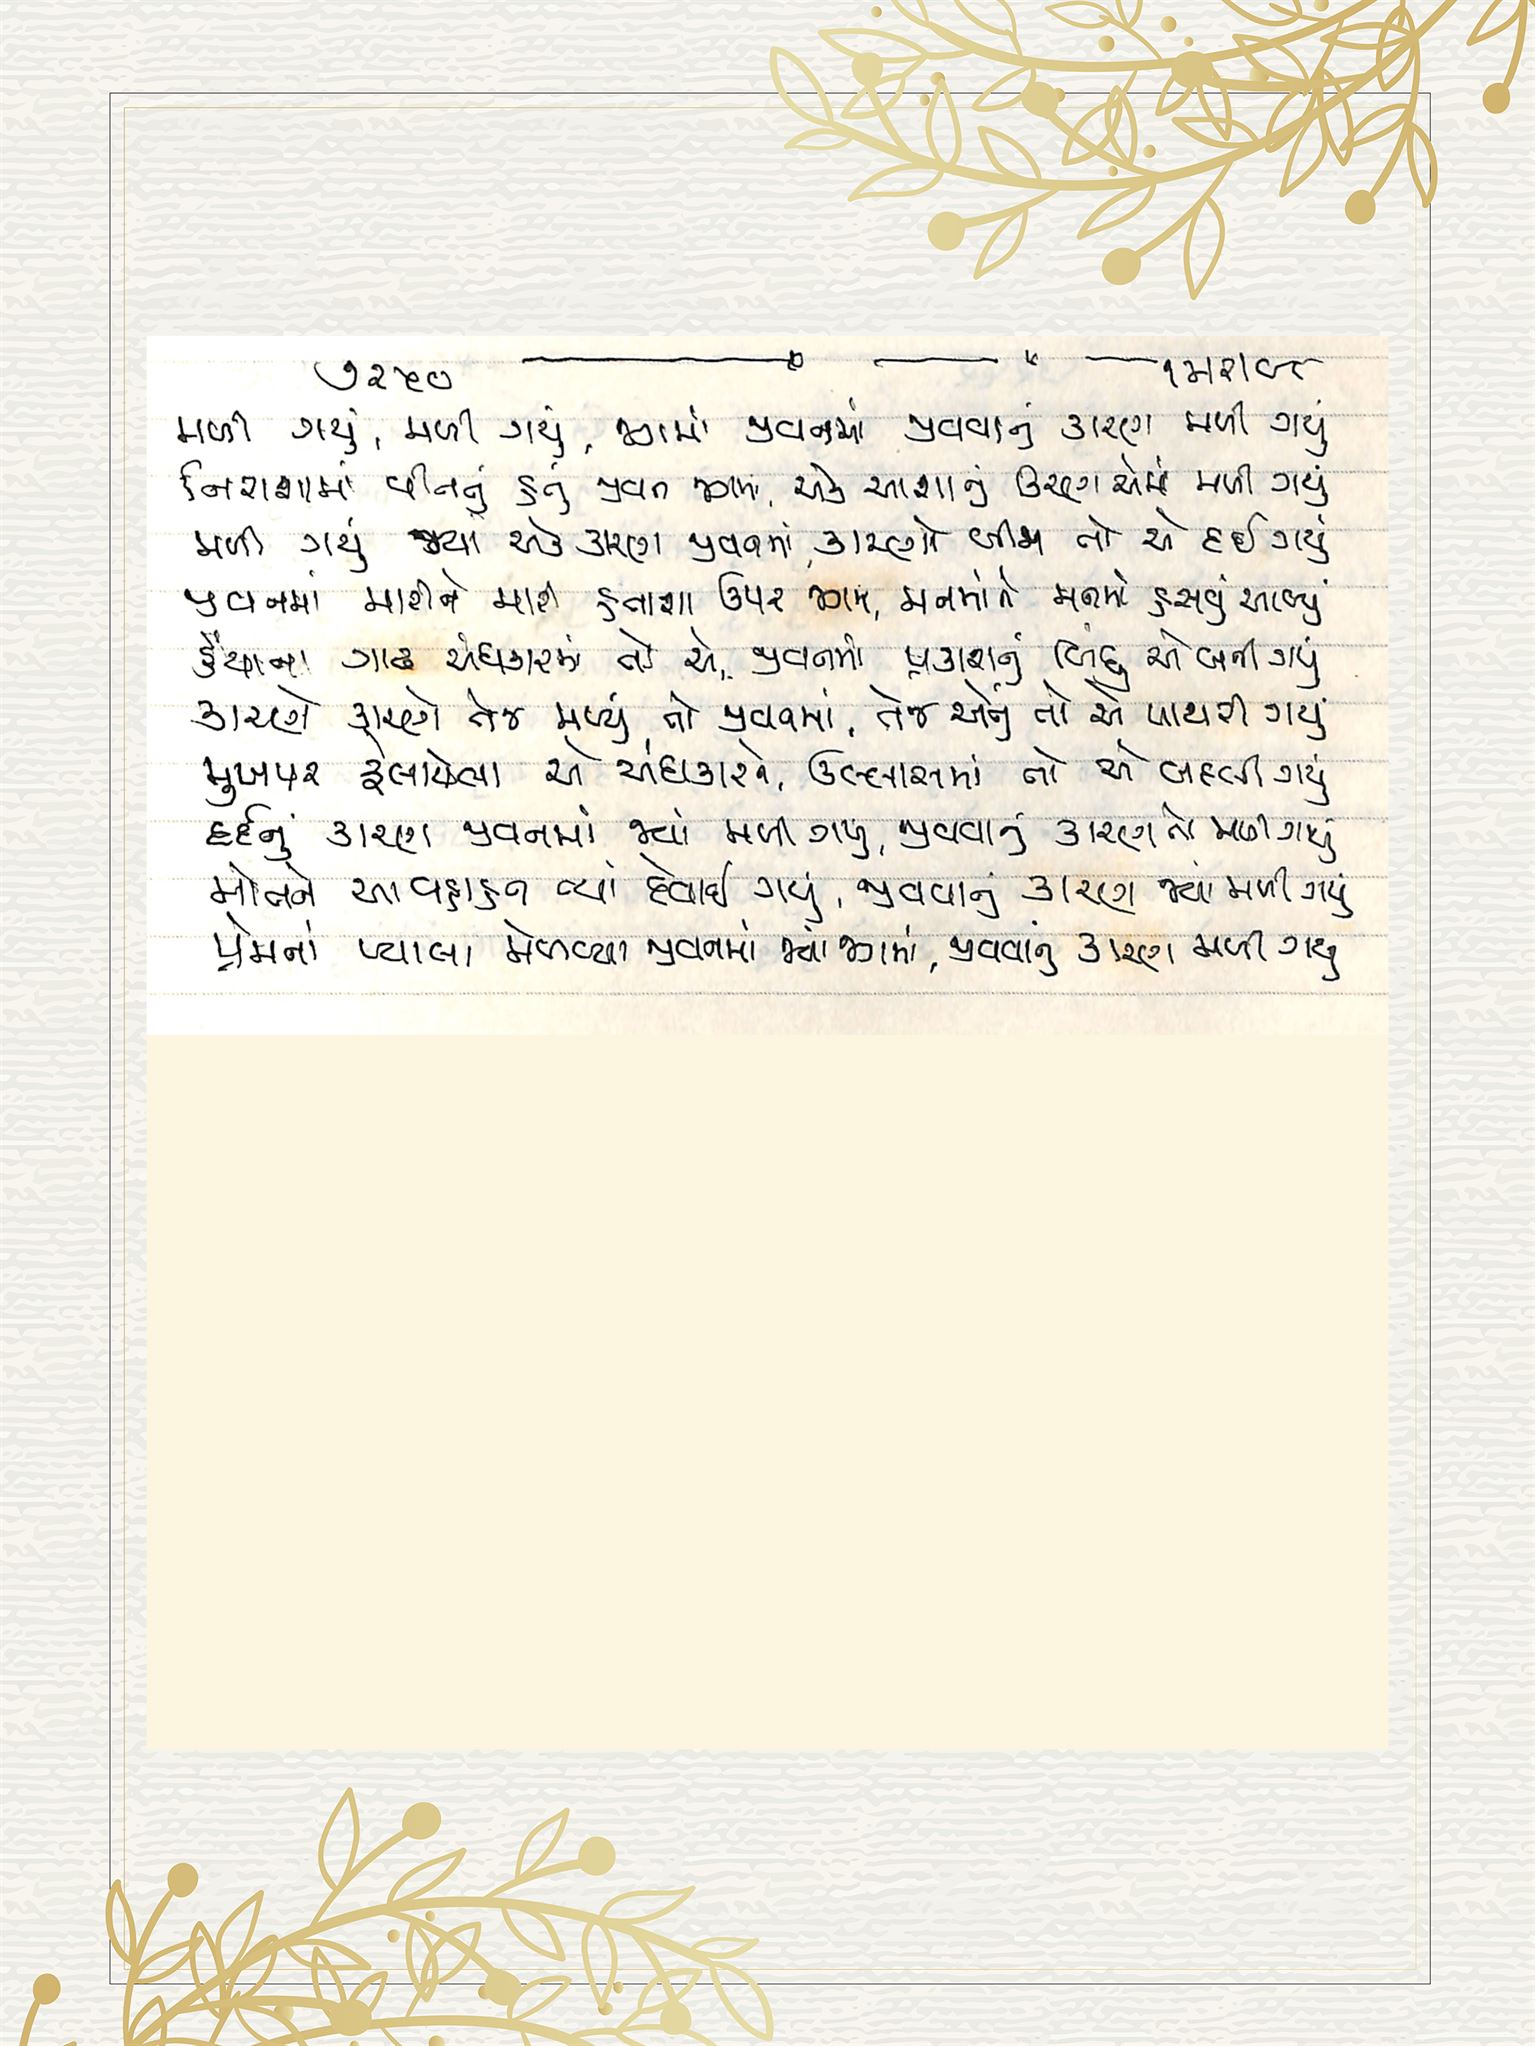 ૭૨૫૦
મળી ગયું, મળી ગયું, જગમાં જીવનમાં જીવવાનું કારણ મળી ગયું
નિરાશામાં વીતતું હતું જીવન જગમાં, એક આશાનું કિરણ એમાં મળી ગયું
મળી ગયું જ્યાં એક કારણ જીવનમાં, કારણો બીજા તો એ દઈ ગયું
જીવનમાં મારીને મારી હતાશા ઉપર જગમાં, મનમાંને મનમાં હસવું આવ્યું
હૈયાના ગાઢ અંધકારમાં તો એ, જીવનમાં પ્રકાશનું બિંદુ એ બની ગયું
કારણે કારણે તેજ મળ્યું તો જીવનમાં, તેજ એનું તો એ પાથરી ગયું
મુખપર ફેલાયેલા એ અંધકારને, ઉલ્લાસમાં તો એ બદલી ગયું
દર્દનું કારણ જીવનમાં જ્યાં મળી ગયું, જીવવાનું કારણ તો મળી ગયું
મોતને આવહાહન ત્યાં દેવાઈ ગયું, જીવવાનું કારણ જ્યાં મળી ગયું
પ્રેમનાં પ્યાલા મેળવ્યા જીવનમાં જ્યાં જગમાં, જીવવાનું કારણ મળી ગયું